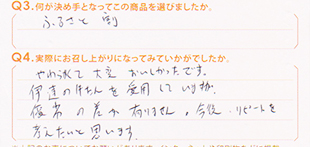 Q3.何が決め手となってこの商品を選びましたか。
ふるさと割
Q4.実際にお召し上がりになってみていかがでしたか。
やわらかくて大変おいしかったです。
伊達の牛たんを愛用していますが、
の差が有りません。今後、リピートを
考えたいと思います。